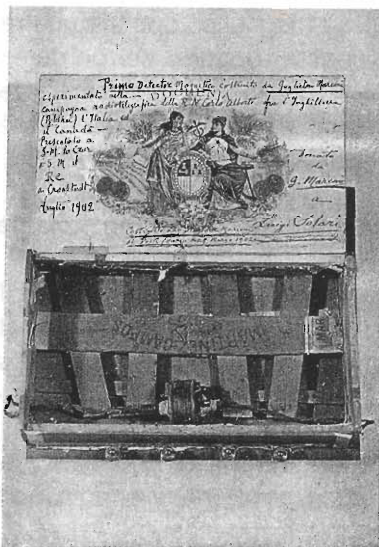 Primo Detector Magnetico costruito da Guglielmo Marconi
esperimentato nella
campagna radiotelegrafica della R. N. Carlo Alberto fra l'Inghilterra
(Poldhu) l'Italia ed
il Canadà -
Presentato a
S. M. lo Czar
e S. M. il
Re
a Cronstadt
Luglio 1902
Donato
da
G. Marconi
a
Luigi Solari
MARTINEZ CAMPOS